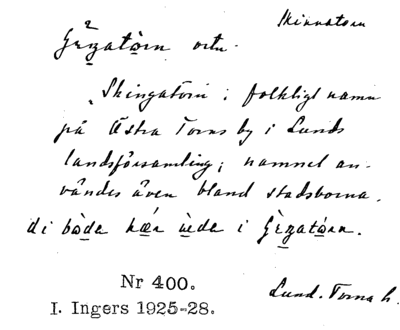 Skinnatorn
Gèzatòrn ortn.
"Skingatorn; folkligt namn
på Östra Torns by i Lunds
landsförsamling; namnet an-
vändes även bland stadsborna.
di bòda hær ùda i Gèzatòrn.
Nr 400.
I. Ingers 1925-28.
Lund. Torna h.